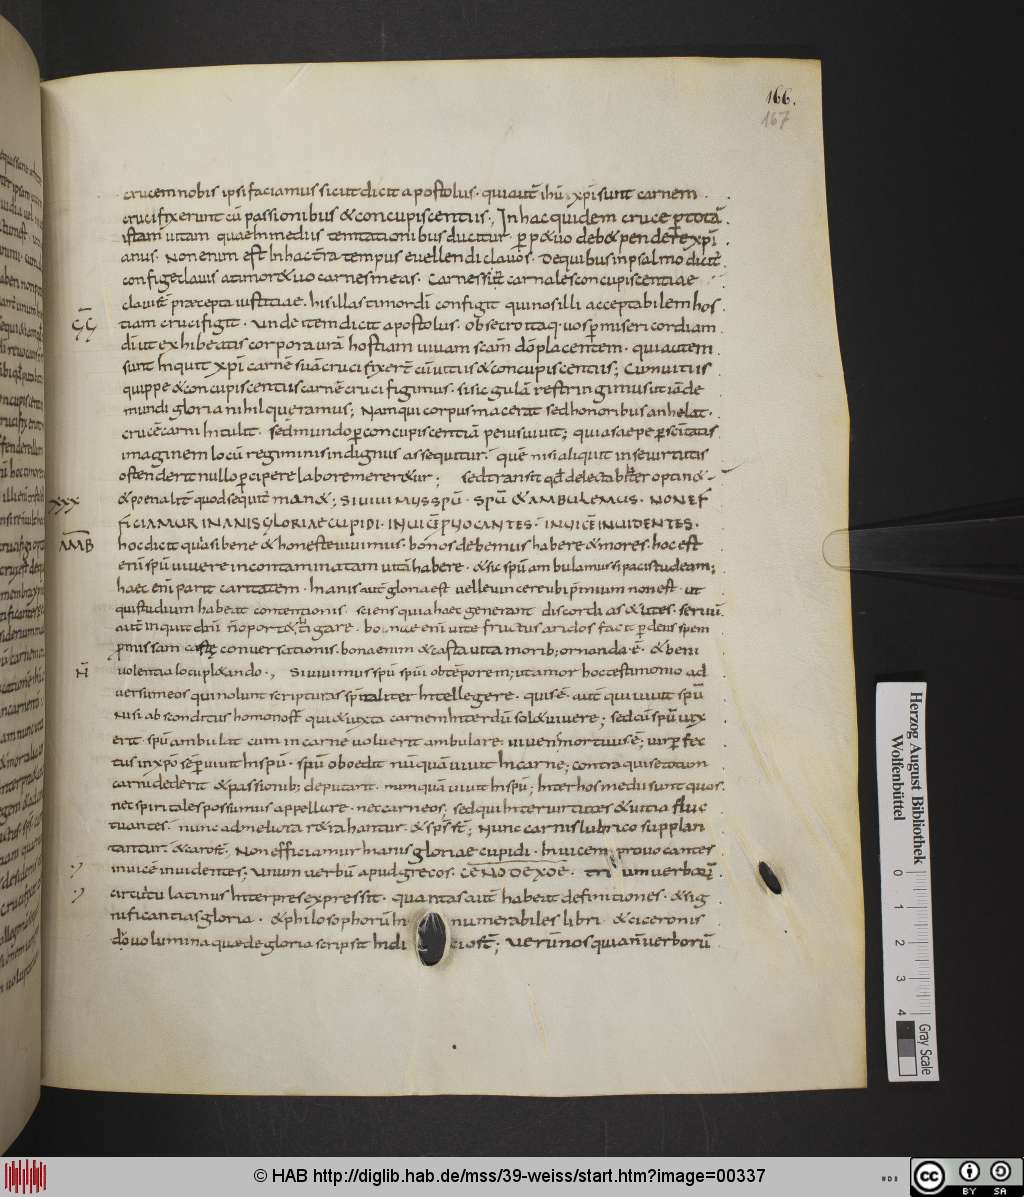 166.
167
crucem nobis ipsi faciamus sicut dicit apostolus · qui aut̄ ihū xp̄i sunt carnem ·
crucifixerunt cū passionibus & concupiscentiis ·, In hac quidem cruce ꝑ totā
istam uitam quae In mediis temtationibus ducitur · ꝑp&uo deb& pendere xp̄i
anus · Non enim est In hac t̄ra tempus euellendi clauos · De quibus in psalmo dicit̄
confige clauis a timore tuo carnes meas · Carnes sunt carnales concupiscentiae
claui st̄ praecepta iustitiae · his illas timor dn̄i configit qui nos illi acceptabilem hos
tiam crucifigit · Unde item dicit apostolus · obsecro itaq· uos ꝑ misericordiam
dī ut exhibeatis corpora ur̄a hostiam uiuam sc̄am dō placentem · qui autem
sunt Inquit xp̄i carnē suā crucifixer̄t cū uitiis & concupiscentiis; Cum uitiis
quippe & concupiscentiis carnē crucifigimus · si sic gulā restringimus ut iā de
mundi gloria nihil queramus; Nam qui corpus macerat sed honoribus anhelat ·
crucē carni Intulit · sed mundo ꝑ concupiscentiā peius uiuit; quia saepe ꝑ sc̄itatis
imaginem locū regiminis indignus assequitur · quē nisi aliquit in se uirtutis
ostenderit nullo ꝑcipere labore merer&ur; sed transit qd̄ delectabiliter optin&
& poenalit̄ quod sequit̄ man&; SI UIUIMUS SPŪ · SPŪ & AMBULEMUS · NON EF
FICIAMUR INANIS GLORIAE CUPIDI · INUICĒ PROUOCANTES · INUICĒ INUIDENTES ·
hoc dicit quasi bene & honeste uiuimus · bonos debemus habere & mores · hoc est
enī spū uiuere incontaminatam uitā habere · & sic spū ambulamus si paci studeam;
haec enī parit caritatem · Inanis aut̄ gloria est uelle uincere ubi p̄mium non est · ut
qui studium habeat contentionis · sciens quia haec generant discordias & lites · seruū
aut̄ inquit dn̄i n̄ oport& litigare · bonae enī uite fructus aridos facit ꝑdens spem
ꝓmissam castae conuersationis · bona enim & casta uita morib; ornanda ē · & beni
uolentia locupl&ando ·, Si uiuimus spū spūi obtēporem; utamor hoc testimonio ad
uersum eos qui nolunt scripturas spītaliter Intellegere · quis ē aut̄ qui uiuit spū
Nisi absconditus homo nost̄ qui & iuxta carnem Interdū sol& uiuere; sed cū spū uix
erit · spū ambulat cum in carne uoluerit ambulare · uiuens mortuus ē; uir ꝑfec
tus in xp̄o semꝑ uiuit In spū · spūi oboedit nū quā uiuit In carne; contra qui se totum
carni dederit & passionib; deputarit · numquā uiuit In spū; Inter hos medii sunt quos
nec spiritales possumus appellare · nec carneos; sed qui Inter uirtutes & uitia fluc
tuantes · nunc ad meliora r&rahantur · & sps̄ st̄; Nunc carnis lubrico supplan
tantur · & caro st̄ · Non efficiamur Inanis gloriae cupidi · Inuicem prouocantes
Inuicē inuidentes; Unum uerbū apud grecos · CENODEXOE · trium uerborū
circuitu latinus Interpres expressit · quantas aut̄ habeat definitiones · & sig
nificantias gloria · & philosophorū In numerabiles libri · & ciceronis
duo uolumina quae de gloria scripsit Indicio st̄; Uerū nos quia n̄ uerborū
ÇÇ
XXX
AMB
H̄
Herzog August Bibliothek
Wolfenbüttel
0 1 2 3 4
Gray Scale
© HAB http://diglib.hab.de/mss/39-weiss/start.htm?image=00337
cc BY SA